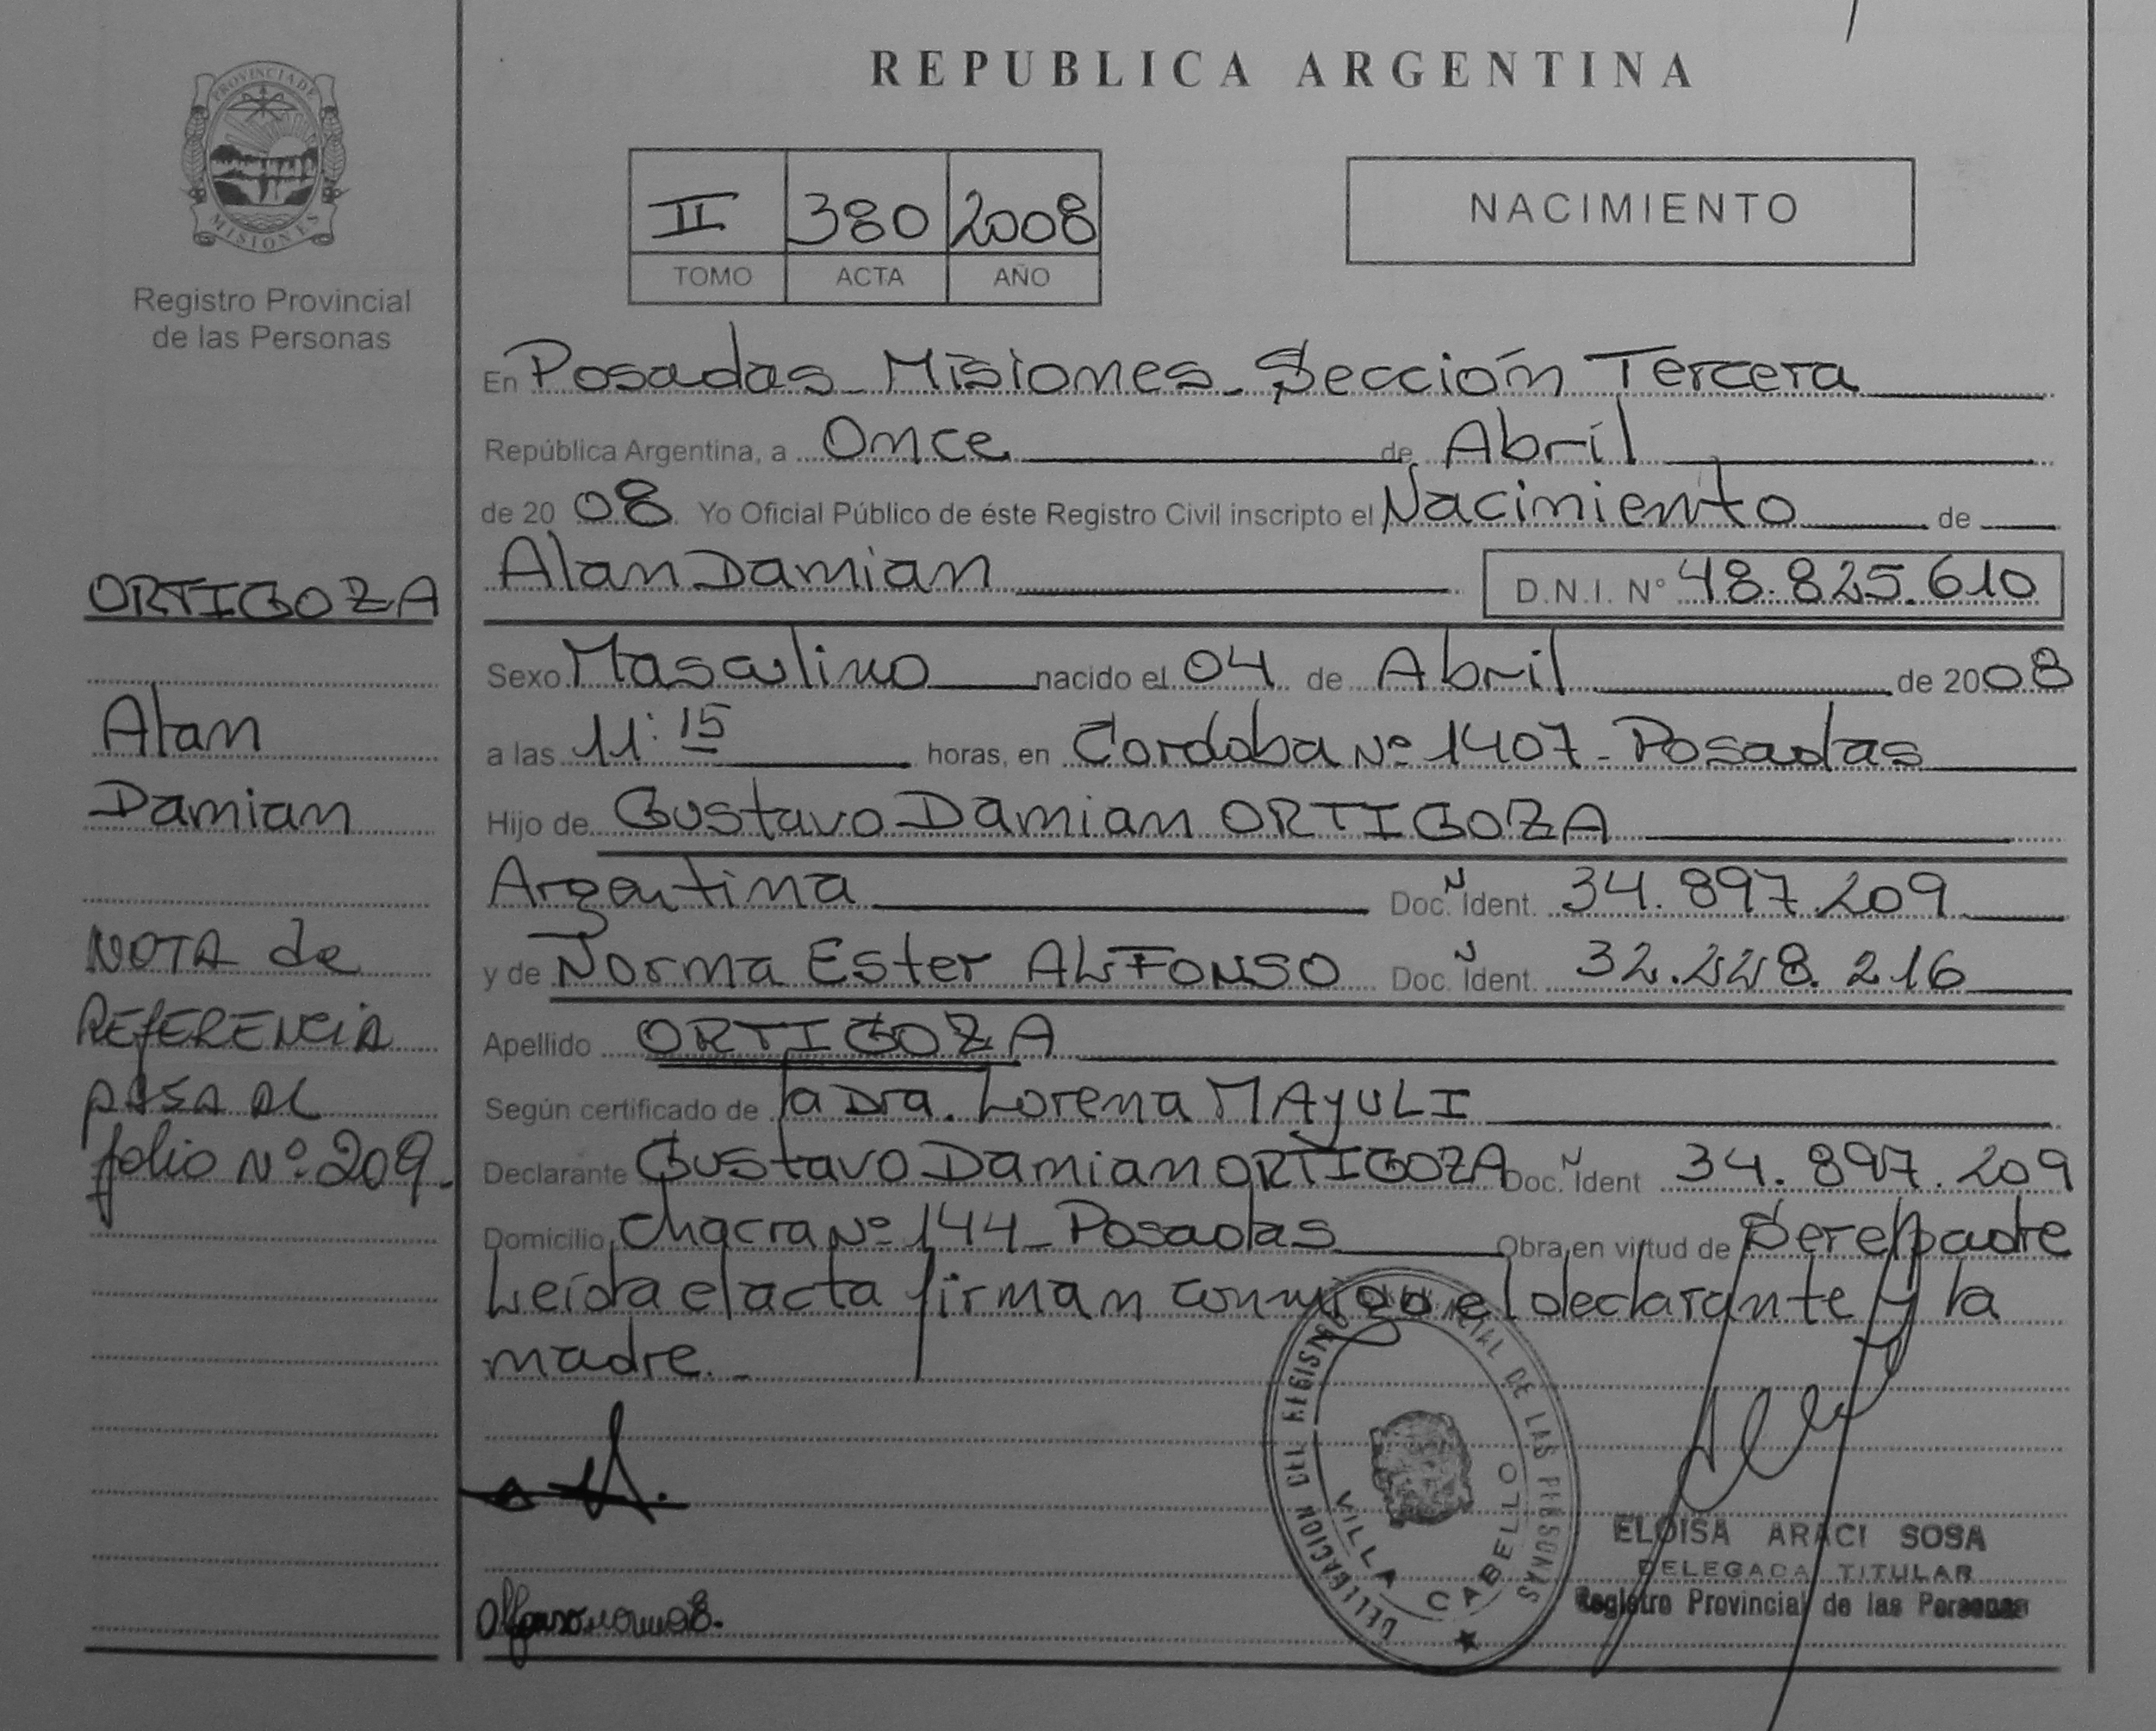 REPUBLICA ARGENTINA
PROVINCIA DE
MISIONES
Registro Provincial
de las Personas
II 380 2008
TOMO ACTA AÑO
NACIMIENTO
En Posadas - Misiones - Sección Tercera
República Argentina, a Once de Abril
de 2008 Yo Oficial Público de éste Registro Civil inscripto el Nacimiento de
Alan Damian D.N.I. Nº 48.825.610
Sexo Masculino nacido el 04 de Abril de 2008
a las 11:15 horas, en Cordoba Nº 1407 - Posadas
Hijo de Gustavo Damian ORTIGOZA
Argentina Doc. Ident. 34.897.209
y de Norma Ester ALFONSO Doc. Ident. 32.228.216
Apellido ORTIGOZA
Según certificado de la Dra. Lorena MAyULI
Declarante Gustavo Damian ORTIGOZA Doc. Ident 34.897.209
Domicilio Chacra Nº 144 - Posadas Obra en virtud de Ser el padre
Leída el acta firman conmigo el declarante y la
madre. -
ORTIGOZA
Alan
Damian
NOTA de
REFERENCIA
PASA AL
folio Nº 209.
DELEGACION DEL REGISTRO PROVINCIAL DE LAS PERSONAS
VILLA CABELLO
ELOISA ARACI SOSA
DELEGADA TITULAR
Registro Provincial de las Personas